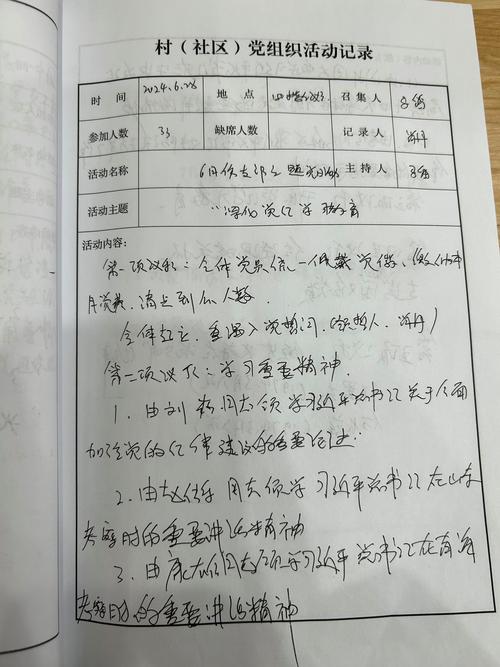 村（社区）党组织活动记录
时 间 2024.6.28 地 点 召 集 人
参加人数 33 缺席人数 记 录 人
活动名称 6月份支部主题党日活动 主 持 人
活动主题 "深化党纪学习教育
活动内容：
第一项议程：全体党员统一佩戴党徽、缴纳本
月党费，清点到会人数。
全体起立，重温入党誓词，（领誓人：）
第二项议程：学习重要精神
1、由刘同志领学习近平总书记关于全面
加强党的纪律建设的重要论述
2、由赵同志领学习近平总书记在山东
考察时的重要讲话精神
3、由同志领学习近平总书记在青海
考察时的重要讲话精神